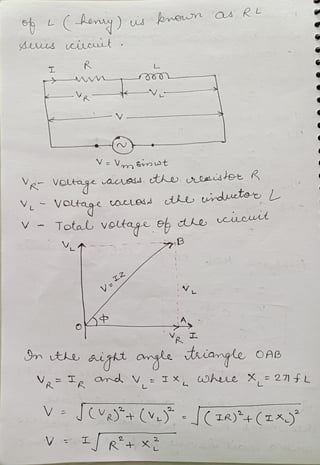 of L (henry) is known as RL
series circuit.
I R L
VR VL
V
V = Vm sinωt
VR - Voltage across the resistor R
VL - Voltage across the inductor L
V - Total voltage of the circuit
VL B
V = IZ VL
O Φ A
VR I
In the right angle triangle OAB
VR = IR and VL = IXL where XL = 2πfL
V = √(VR)² + (VL)² = √(IR)² + (IXL)²
V = I√R² + XL²